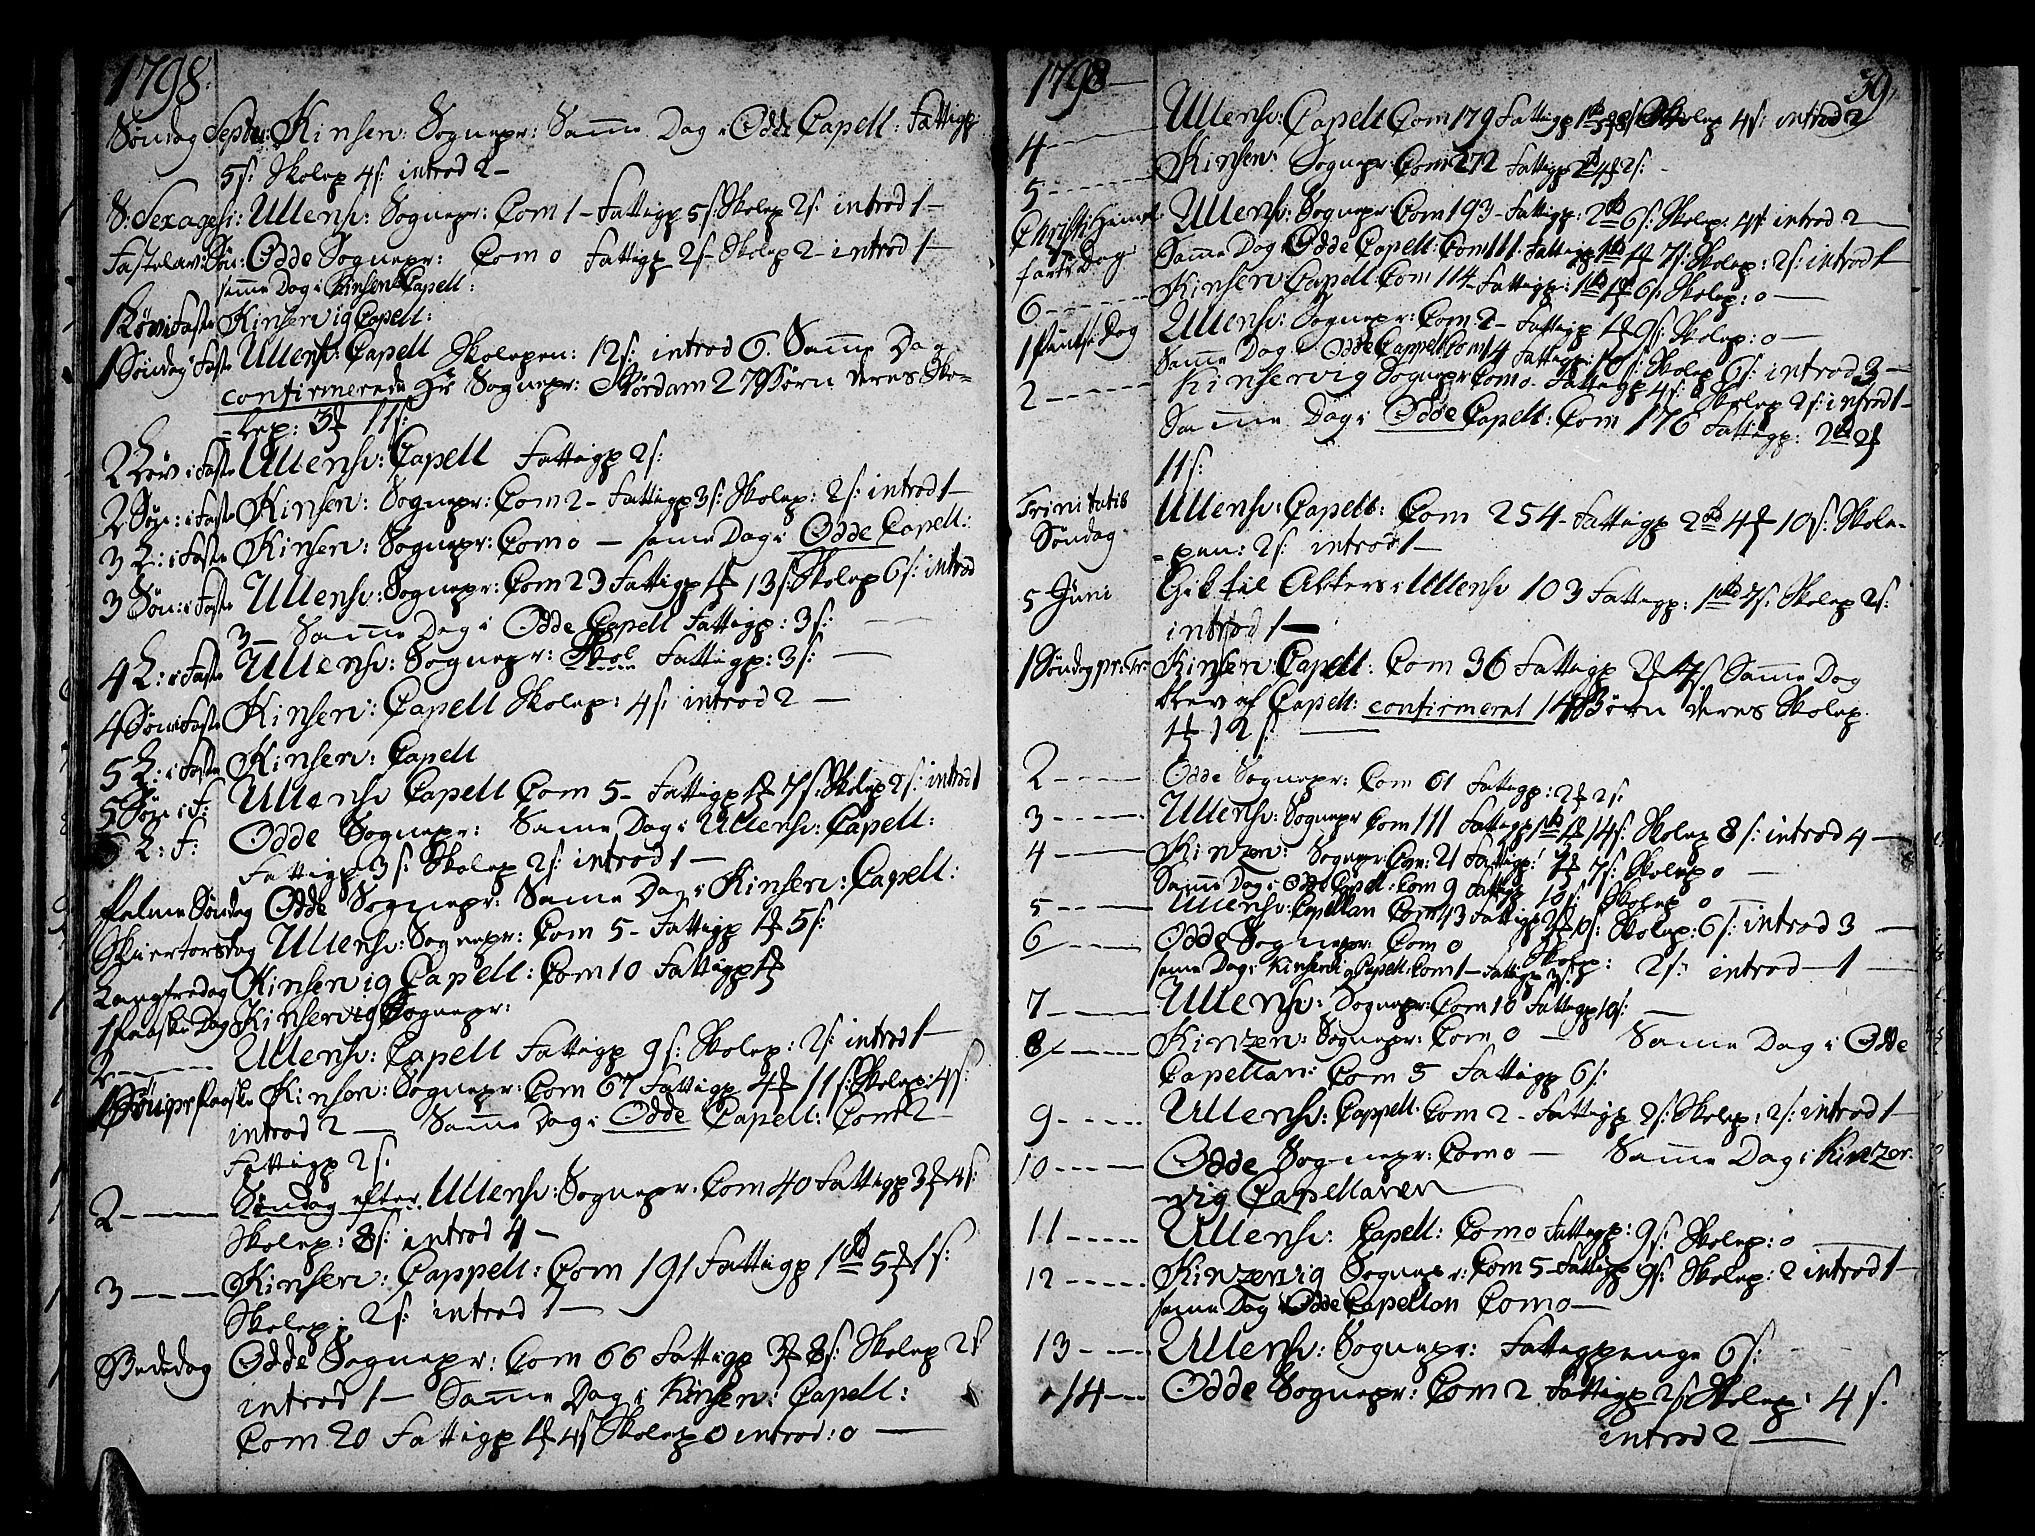 1798.
Søndag Septu: Kinserv: Sognepr: Samme Dag i Odde Capell: Fattigp:
5 s: Skolep 4 s: introd 2 –
S. Sexagesi: Ullensv: Sognepr: Com 1 – Fattigp 5 s: Skolep 2 s: introd 1 –
Fastelav: Søn: Odde Sognepr: Com 0 Fattigp 2 s – Skolep 2 – introd 1 –
samme Dag i Kinserv Capell:
1 Løv: i Faste Kinservig Capell:
1 Søndag i Faste Ullensv: Capell Skolepen: 12 s: introd 6. Samme Dag
confirmerede Hr Sognepr: 27 Børn deres Sko=
=lep: 3 ꝑ 11 s:
2 Løv: i Faste Ullensv: Capell Fattigp 2 s:
2 Søn: i Faste Kinserv: Sognepr: Com 2 – Fattigp 3 s: Skolep: 2 s: introd 1 –
3 L: i Faste Kinserv: Sognepr: Com 0 – same Dag i Odde Capell:
3 Søn: i Faste Ullensv: Sognepr: Com 23 Fattigp 1 ꝑ 13 s: Skolep 6 s: introd
3 – Samme Dag i Odde Capell Fattigp: 3 s: –
4 L: i Faste Ullensv: Sognepr: Fattigp: 3 s: –
4 Søn: i Faste Kinserv: Capell Skolep: 4 s: introd 2 –
5 L: i Faste Kinserv: Capell
5 Søn: i F: Ullensv Capell Com 5 – Fattigp 1 ꝑ 7 s: Skolep 2 s: introd 1
6 L: F: Odde Sognepr: Same Dag i Ullensv: Capell:
Fattigp 3 s: Skolep 2 s: introd 1 –
Palme Søndag Odde Sognepr: Same Dag i Kinserv: Capell:
Skiertorsdag Ullensv: Sognepr: Com 5 – Fattigp 1 ꝑ 5 s:
Langfredag Kinservig Capell: Com 10 Fattigp 1 ꝑ
1 Paaske Dag Kinservig Sognepr:
2 – – – Ullensv: Capell Fattigp 9 s: Skolep: 2 s: introd 1 –
1 Søn: pr Paaske Kinserv: Sognepr: Com 67 Fattigp 4 ꝑ 11 s: Skolep: 4 s:
introd 2 – Samme Dag i Odde Capell: Com 2
Fattigp 2 s:
2 – – – Søndag efter Ullensv: Sognepr: Com 40 Fattigp 3 ꝑ 4 s:
Skolep: 8 s: introd 4 –
3 – – – Kinserv: Cappell: Com 191 Fattigp 1 rd 5 ꝑ 1 s:
Skolep: 2 s: introd 1 –
Bededag Odde Sognepr: Com 66 Fattigp 3 ꝑ 8 s: Skolep 2 s
introd 1 – Samme Dag i Kinserv: Capell:
Com 20 Fattigp 1 ꝑ 4 s Skolep 0 introd: 0 –
1798 39
4 – – Ullensv: Capell Com 179 Fattigp 1 rd Skolep 4 s: introd 2
5 – – – Kinserv: Sognepr: Com 272 Fattigp 2 rd 4 ꝑ 2 s: –
Christi Himmelfarts Dag Ullensv: Sognepr: Com 193 – Fattigp: 2 rd 6 s: Skolep: 4 s: introd 2
Samme Dag i Odde Capell: Com 111 Fattigp 1 rd 1 ꝑ 7 s: Skolep: 2 s: introd 1
6 – – – Kinserv: Capell: Com 114 – Fattigp: 1 rd 1 ꝑ 6 s: Skolep: 0 –
1 Pintse Dag Ullensv: Sognepr: Com: 2 – Fattigp 1 ꝑ 9 s: Skolep: 0 –
Samme Dag i Odde Cappell Com 14 Fattigp: 10 s: Skolep 6 s: introd 3 –
2 – – – Kinservig Sognepr Com 0. Fattigp 4 s: Skolep 2 s: introd 1 –
Samme Dag i Odde Capell: Com 176 Fattigp: 2 rd 2 ꝑ
11 s:
Trinitatis Søndag Ullensv: Capell: Com 254 – Fattigp 2 rd 4 ꝑ 10 s: Skole=
=pen: 2 s: introd 1 –
5 Juni Gik til Alters i Ullensv 103 Fattigp: 1 rd 7 s: Skolep 2 s:
introd 1 –
1 Søndag pr: Tr: Kinserv: Capell: Com 36 Fattigp 2 ꝑ 4 s Samme Dag
blev af Capell: confirmeret 14 Børn deres Skolep.
1 ꝑ 12 s:
2 – – – Odde Sognepr: Com 61 Fattigp: 2 ꝑ 2 s:
3 – – – Ullensv: Sognepr Com 111 Fattigp 1 rd 1 ꝑ 14 s: Skolep 8 s: introd 4 –
4 – – Kinzerv: Sognepr: Com: 21 Fattigp: 1 ꝑ 7 s: Skolep 0 –
Samme Dag i Odde Capell: Com 9 Fattigp 10 s: Skolep 0 –
5 – – – Ullensv: Capellan Com 43 Fattigp 2 ꝑ 10 s: Skolep: 6 s: introd 3 –
6 – – – Odde Sognepr: Com 0 Skolep: 2 s: introd – 1 –
same Dag i Kinservig Capell: Com 1 – Fattigp 3 s:
7 – – Ullensv: Sognepr: Com 10 Fattigp 10 s: –
8 – – – Kinzerv: Sognepr: Com 0 – Same Dag i Odde
Capellan: Com 5 Fattigp 6 s:
9 – – – Ullensv: Cappell: Com 2 – Fattigp 2 s: Skolep: 2 s: introd 1 –
10 – – – Odde Sognepr: Com 0 – Samme Dag i Kinzer
vig Capellanen
11 – – – Ullensv: Capell: Com 0 Fattigp: 9 s: Skolep: 0
12 – – – Kinzervig Sognepr: Com 5 – Fattigp 9 s: Skolep: 2 introd 1 –
same Dag i Odde Capellan Com 0 –
13 – – – Ullensv: Sognepr: Fattigpenge 6 s:
14 – – Odde Sognepr: Com 2 Fattigp 2 s Skolep: 4 s.
introd 2 –